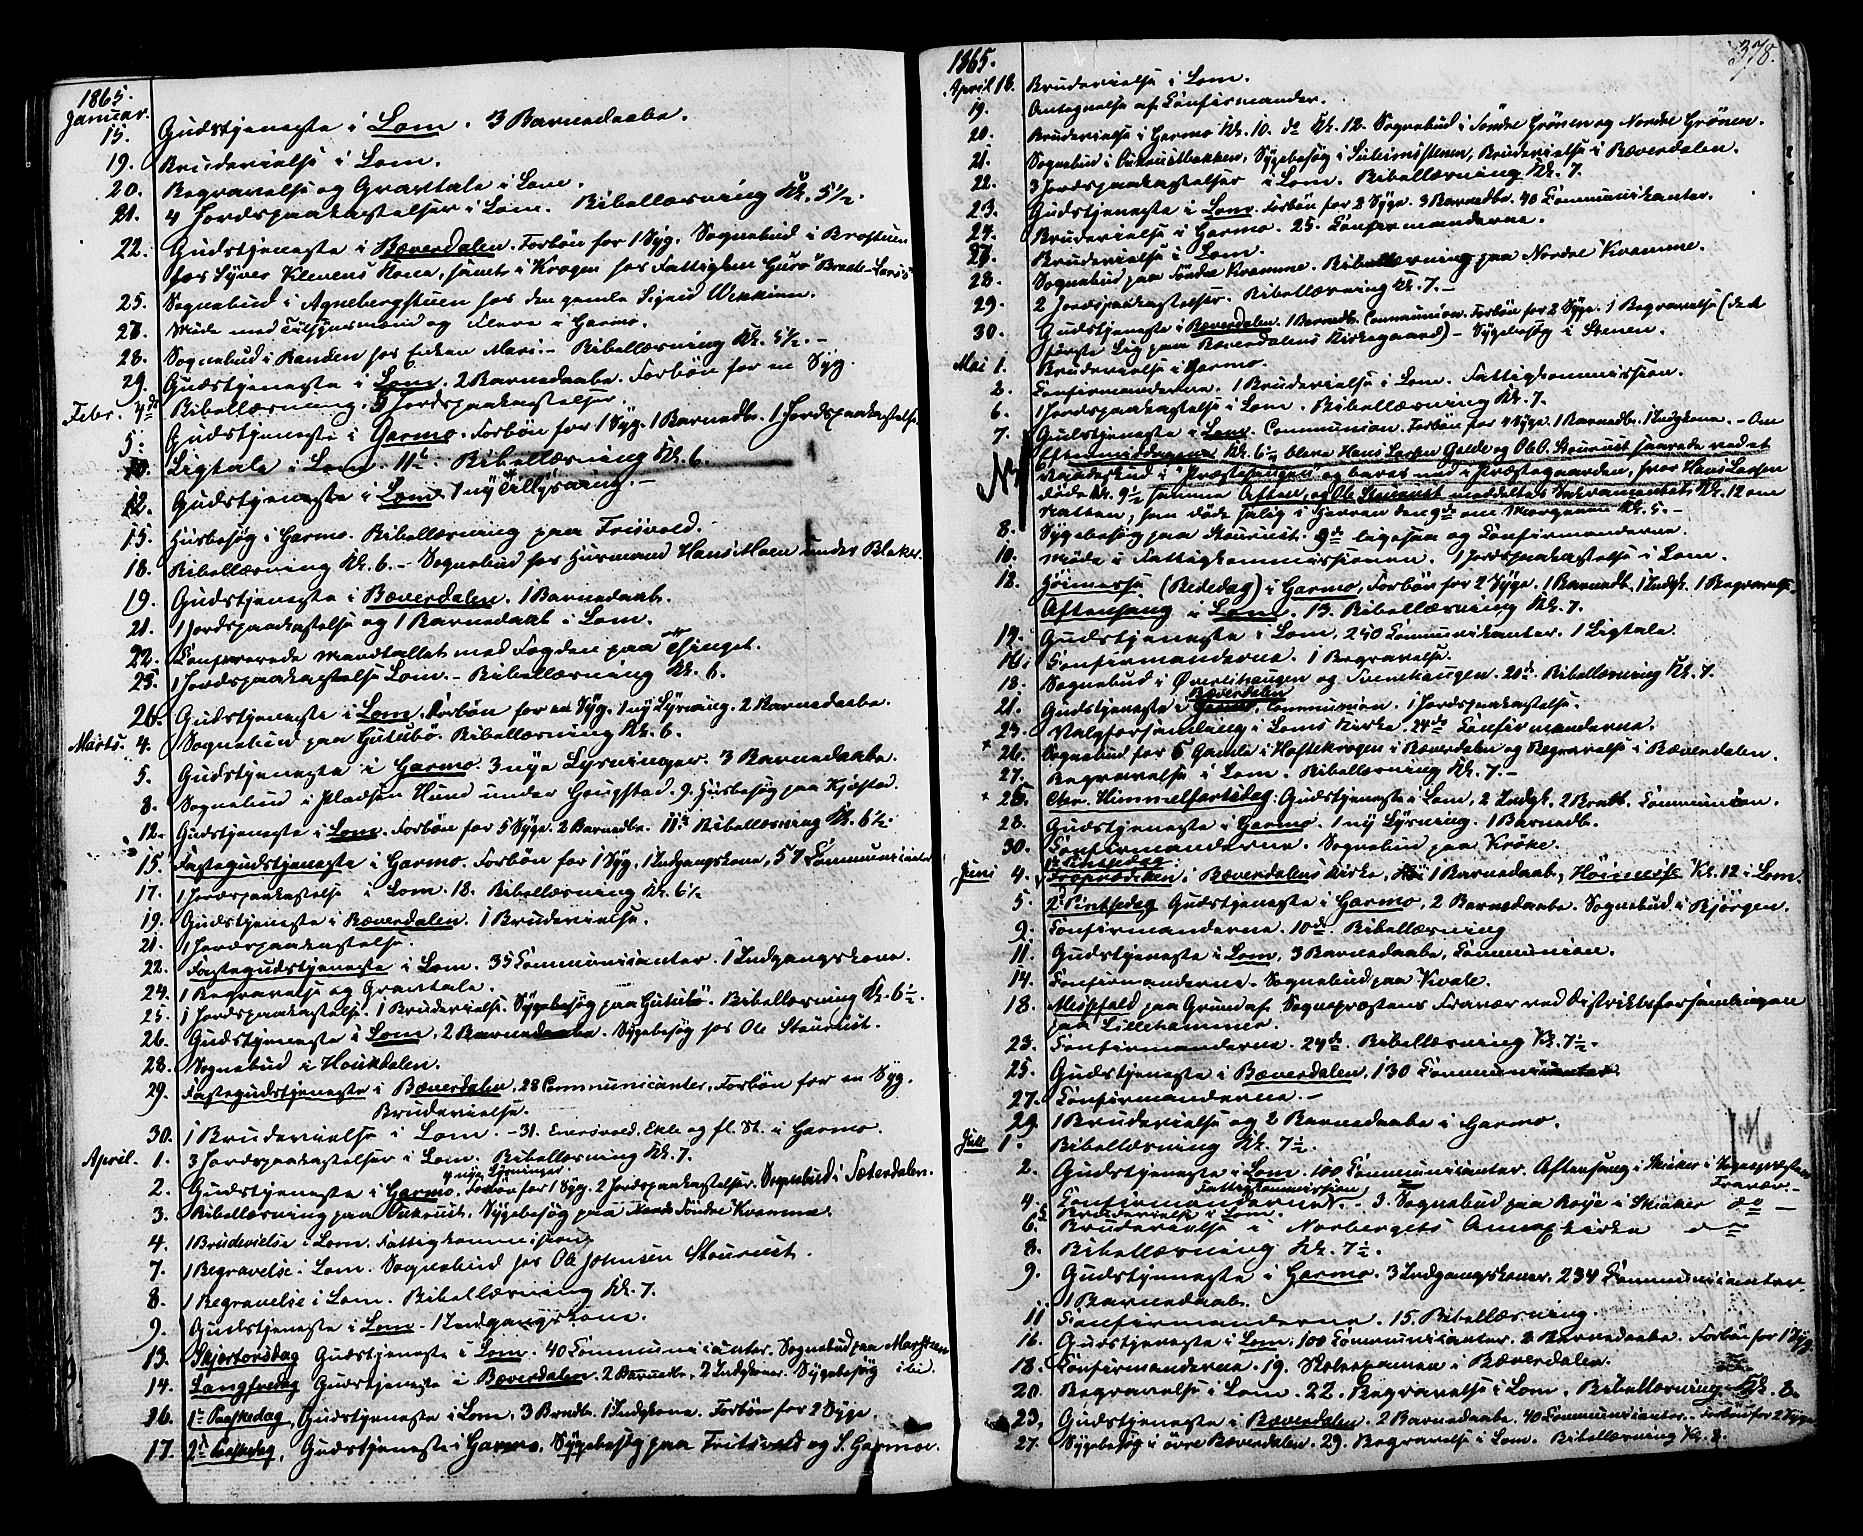 1865.
Januar.
15. Gudstjeneste i Lom. 3 Barnedaabe.
19. Brudevielse i Lom.
20. Begravelse og Gravtale i Lom.
21. 4 Jordspaakastelser i Lom. Bibellæsning Kl. 5 1/2.
22. Gudstjeneste i Bæverdalen. Forbön for 1 Syg. Sognebud i Brostuen
hos Syver Klevens Kone, samt i Krogen hos Fattiglem Guro
25. Sognebud i Agnebergstuen hos den gamle
28. Sognebud i Randen hos Enken Mari. - Bibellæsning Kl. 5 1/2. -
29. Gudstjeneste i Lom. 2 Barnedaabe. Forbön for en Syg.
Febr. 4de Bibellæsning. 5 Jordspaakastelser.
5. Gudstjeneste i Garmo. Forbön for 1 Syg. 1 Barnedb. 1 Jordspaakastelse.
10. Ligtale i Lom. 11te Bibellæsning Kl. 6.
12. Gudstjeneste i Lom. 1 ny Tillysning. -
15. Husbesög i Garmo. Bibellæsning paa Frisvold.
18. Bibellæsning Kl. 6. - Sognebud hos Husmand Hans Moen under Blaker.
19. Gudstjeneste i Bæverdalen. 1 Barnedaab.
21. 1 Jordspaakastelse og 1 Barnedaab i Lom.
22. Confererede Mandtallet med Fogden paa Thinget.
25. 1 Jordspaakastelse Lom. - Bibellæsning Kl. 6.
26. Gudstjeneste i Lom. Forbön for en Syg. 1 ny Lysning. 2 Barnedaabe.
Marts. 4. Sognebud paa Gutubö. Bibellæsning Kl. 6.
5. Gudstjeneste i Garmo. 3 nye Lysninger. 3 Barnedaabe.
8. Sognebud i Pladsen Hund under Goupstad. 9. Husbesög paa Kjæstad.
12. Gudstjeneste i Lom. Forbön for 5 Syge. 2 Barnedb. Bibellæsning Kl. 6 1/2.
15. Fastegudstjeneste i Garmo. Forbön for 1 Syg, 1 Indgangskone, 57 Communicanter
17. 1 Jordspaakastelse i Lom. 18. Bibellæsning Kl. 6 1/2
19. Gudstjeneste i Bæverdalen. 1 Brudevielse.
21. 1 Jordspaakastelse.
22. Fastegudstjeneste i Lom. 35 Communicanter. 1 Indgangskone.
24. 1 Begravelse og Gravtale.
25. 1 Jordspaakastelse. 1 Brudevielse. Sygebesög paa Gutubö. Bibellæsning Kl. 6 1/2.
26. Gudstjeneste i Lom. 2 Barnedaabe. Sygebesög hos Ole Stourust.
28. Sognebud i Houkdalen.
29. Fastegudstjeneste i Bæverdalen. 28 Communicanter. Forbön for en Syg.
Brudevielse.
30. 1 Brudevielse i Lom. - 31. og fl. St. i Garmo.
April. 1. 3 Jordspaakastelser i Lom. Bibellæsning Kl. 7.
4 nye Lysninger.
2. Gudstjeneste i Garmo. Forbön for 1 Syg. 2 Jordspaakastelser. Sognebud i Sæterdalen.
3. Bibellæsning paa Aukrust. Sygebesög paa Söndre Kvamme.
4. 1 Brudevielse i Lom. Fattigkommission.
7. 1 Begravelse i Lom. Sognebud hos Ole Johnsen Stourust.
8. 1 Begravelse i Lom. Bibellæsning Kl. 7.
9. Gudstjeneste i Lom. 1 Indgangskone.
13. Skjertorsdag Gudstjeneste i Lom. 40 Communicanter. Sognebud paa Marstein
14. Langfredag Gudstjeneste i Bæverdalen. 2 Barnedb. 2 Indgkoner. Sygebesög ibid.
16. 1te Paaskedag, Gudstjeneste i Lom. 3 Brndb. 1 Indgkone. Forbön for 2 Syge.
17. 2den Paaskedag, Gudstjeneste i Garmo. Sygebesög paa Fritsvold og S. Garmo.
1865.
378.
April 18. Brudevielse i Lom.
19. Antegnelse af Confirmander.
20. Brudevielse i Garmo Kl. 10. do Kl. 12. Sognebud i Söndre Grönen og Nordre Grönen.
21. Sognebud i Aukrustbakken, Sygebesög i Brudevielse i Bæverdalen.
22. 3 Jordspaakastelser i Lom. Bibellæsning Kl. 7.
23. Gudstjeneste i Lom. Forbön for 2 Syge. 3 Barnedb. 40 Communikanter.
24. Brudevielse i Garmo. 25. Confirmanderne.
27. Brudevielse i Lom.
28. Sognebud paa Söndre Kvamme. Bibellæsning paa Nordre Kvamme.
29. 2 Jordspaakastelser. Bibellæsning Kl. 7. -
30. Gudstjeneste i Bæverdalen. 1 Barnedb. Communion. Forbön for 2 Syge. 1 Begravelse (det
förste Lig paa Bæverdalens Kirkegaard) - Sygebesög i Stenen.
Mai 1. Brudevielse i Garmo.
2. Confirmanderne. 1 Brudevielse i Lom. Fattigkommission.
6. 1 Jordspaakastelse i Lom. Bibellæsning Kl. 7.
7. Gudstjeneste i Lom. Communion. Forbön for 4 Syge. 1 Barnedb. 1 Indgkone. - Om
Eftermiddagen Kl. 6 1/2 bleve Hans Larsen Galde og Ole O. Stourust saarede ved et
i "Præstehaugen" og bares ned i Præstegaarden, hvor Hans Larsen
döde Kl. 9 1/2 samme Aften, og Ole Stourust meddeltes Sakramentet Kl. 12 om
Natten, han döde salig i Herren den 9de om Morgenen Kl. 5. -
8. Sygebesög paa Stourust. 9de ligesaa og Confirmanderne.
10. Möde i Fattigkommissionen. 1 Jordspaakastelse i Lom.
12. Höimesse (Bededag) i Garmo, Forbön for 2 Syge. 1 Barnedb. 1 Indgk. 1 Begravelse.
Aftensang i Lom. 13. Bibellæsning Kl. 7.
14. Gudstjeneste i Lom. 240 Communikanter. 1 Ligtale.
16. Confirmanderne. 1 Begravelse.
18. Sognebud i Överlihaugen og Tvenhaugen. 20de. Bibellæsning Kl. 7.
Bæverdalen
21. Gudstjeneste i Garmo. Communion. 1 Jordspaakastelse.
23. Valgforsamling i Loms Kirke. 24de Confirmanderne.
26. Sognebud for 6 Gamle i Hoftekrogen i Bæverdalen og Begravelse i Bæverdalen.
27. Begravelse i Lom. Bibellæsning Kl. 7. -
25. Chr. Himmelfartsdag. Gudstjeneste i Lom, 2 Indgk. 2 Brndb. Communion.
28. Gudstjeneste i Garmo. 1 ny Lysning. 1 Barnedb.
30. Confirmanderne. Sognebud paa Kröke.
1te Pintsedag:
Juni 4. Froprædiken i Bæverdalens Kirke, 1 Barnedaab, Höimesse Kl. 12 i Lom.
5. 2. Pintsedag Gudstjeneste i Garmo, 2 Barnedaabe. Sognebud i Björgen.
9. Confirmanderne. 10de. Bibellæsning
11. Gudstjeneste i Lom, 3 Barnedaabe, Communion.
14. Confirmanderne. Sognebud paa Kvale.
18. Messefald paa Grund af Sognepræstens Fravær ved Distriktsforsamlingen
paa Lillehammer.
23. Confirmanderne. 24de. Bibellæsning Kl. 7 1/2.
25. Gudstjeneste i Bæverdalen, 130 Communicanter.
27. Confirmanderne. -
29. 1 Brudevielse og 2 Barnedaabe i Garmo.
Juli 1. Bibellæsning Kl. 7 1/2.
2. Gudstjeneste i Lom. 100 Communicanter. Aftensang i Skiaker i Sognepræstens
Fravær. -
Fattigkommission
4. Confirmanderne. - 3. Sognebud paa Röije i Skiaker do -
5. Brudevielse i Lom.
6. Brudevielse i Norbergets Annexkirke do
8. Bibellæsning Kl. 7 1/2.
9. Gudstjeneste i Garmo. 3 Indgangskoner. 234 Communicanter
1 Barnedaab.
11 Confirmanderne. 15. Bibellæsning.
16. Gudstjeneste i Lom. 100 Communicanter. 2 Barnedaabe. Forbön for 1 Syg.
18. Confirmanderne. 19. Skoleexamen i Bæverdalen.
20. Begravelse i Lom. 22. Begravelse i Lom. Bibellæsning Kl. 8.
23. Gudstjeneste i Bæverdalen. 2 Barnedaabe. 40 Communicanter. Forbön for 2 Syge
27. Sygebesög i övre Bæverdalen. 29. Begravelse i Lom. Bibellæsning Kl. 8.